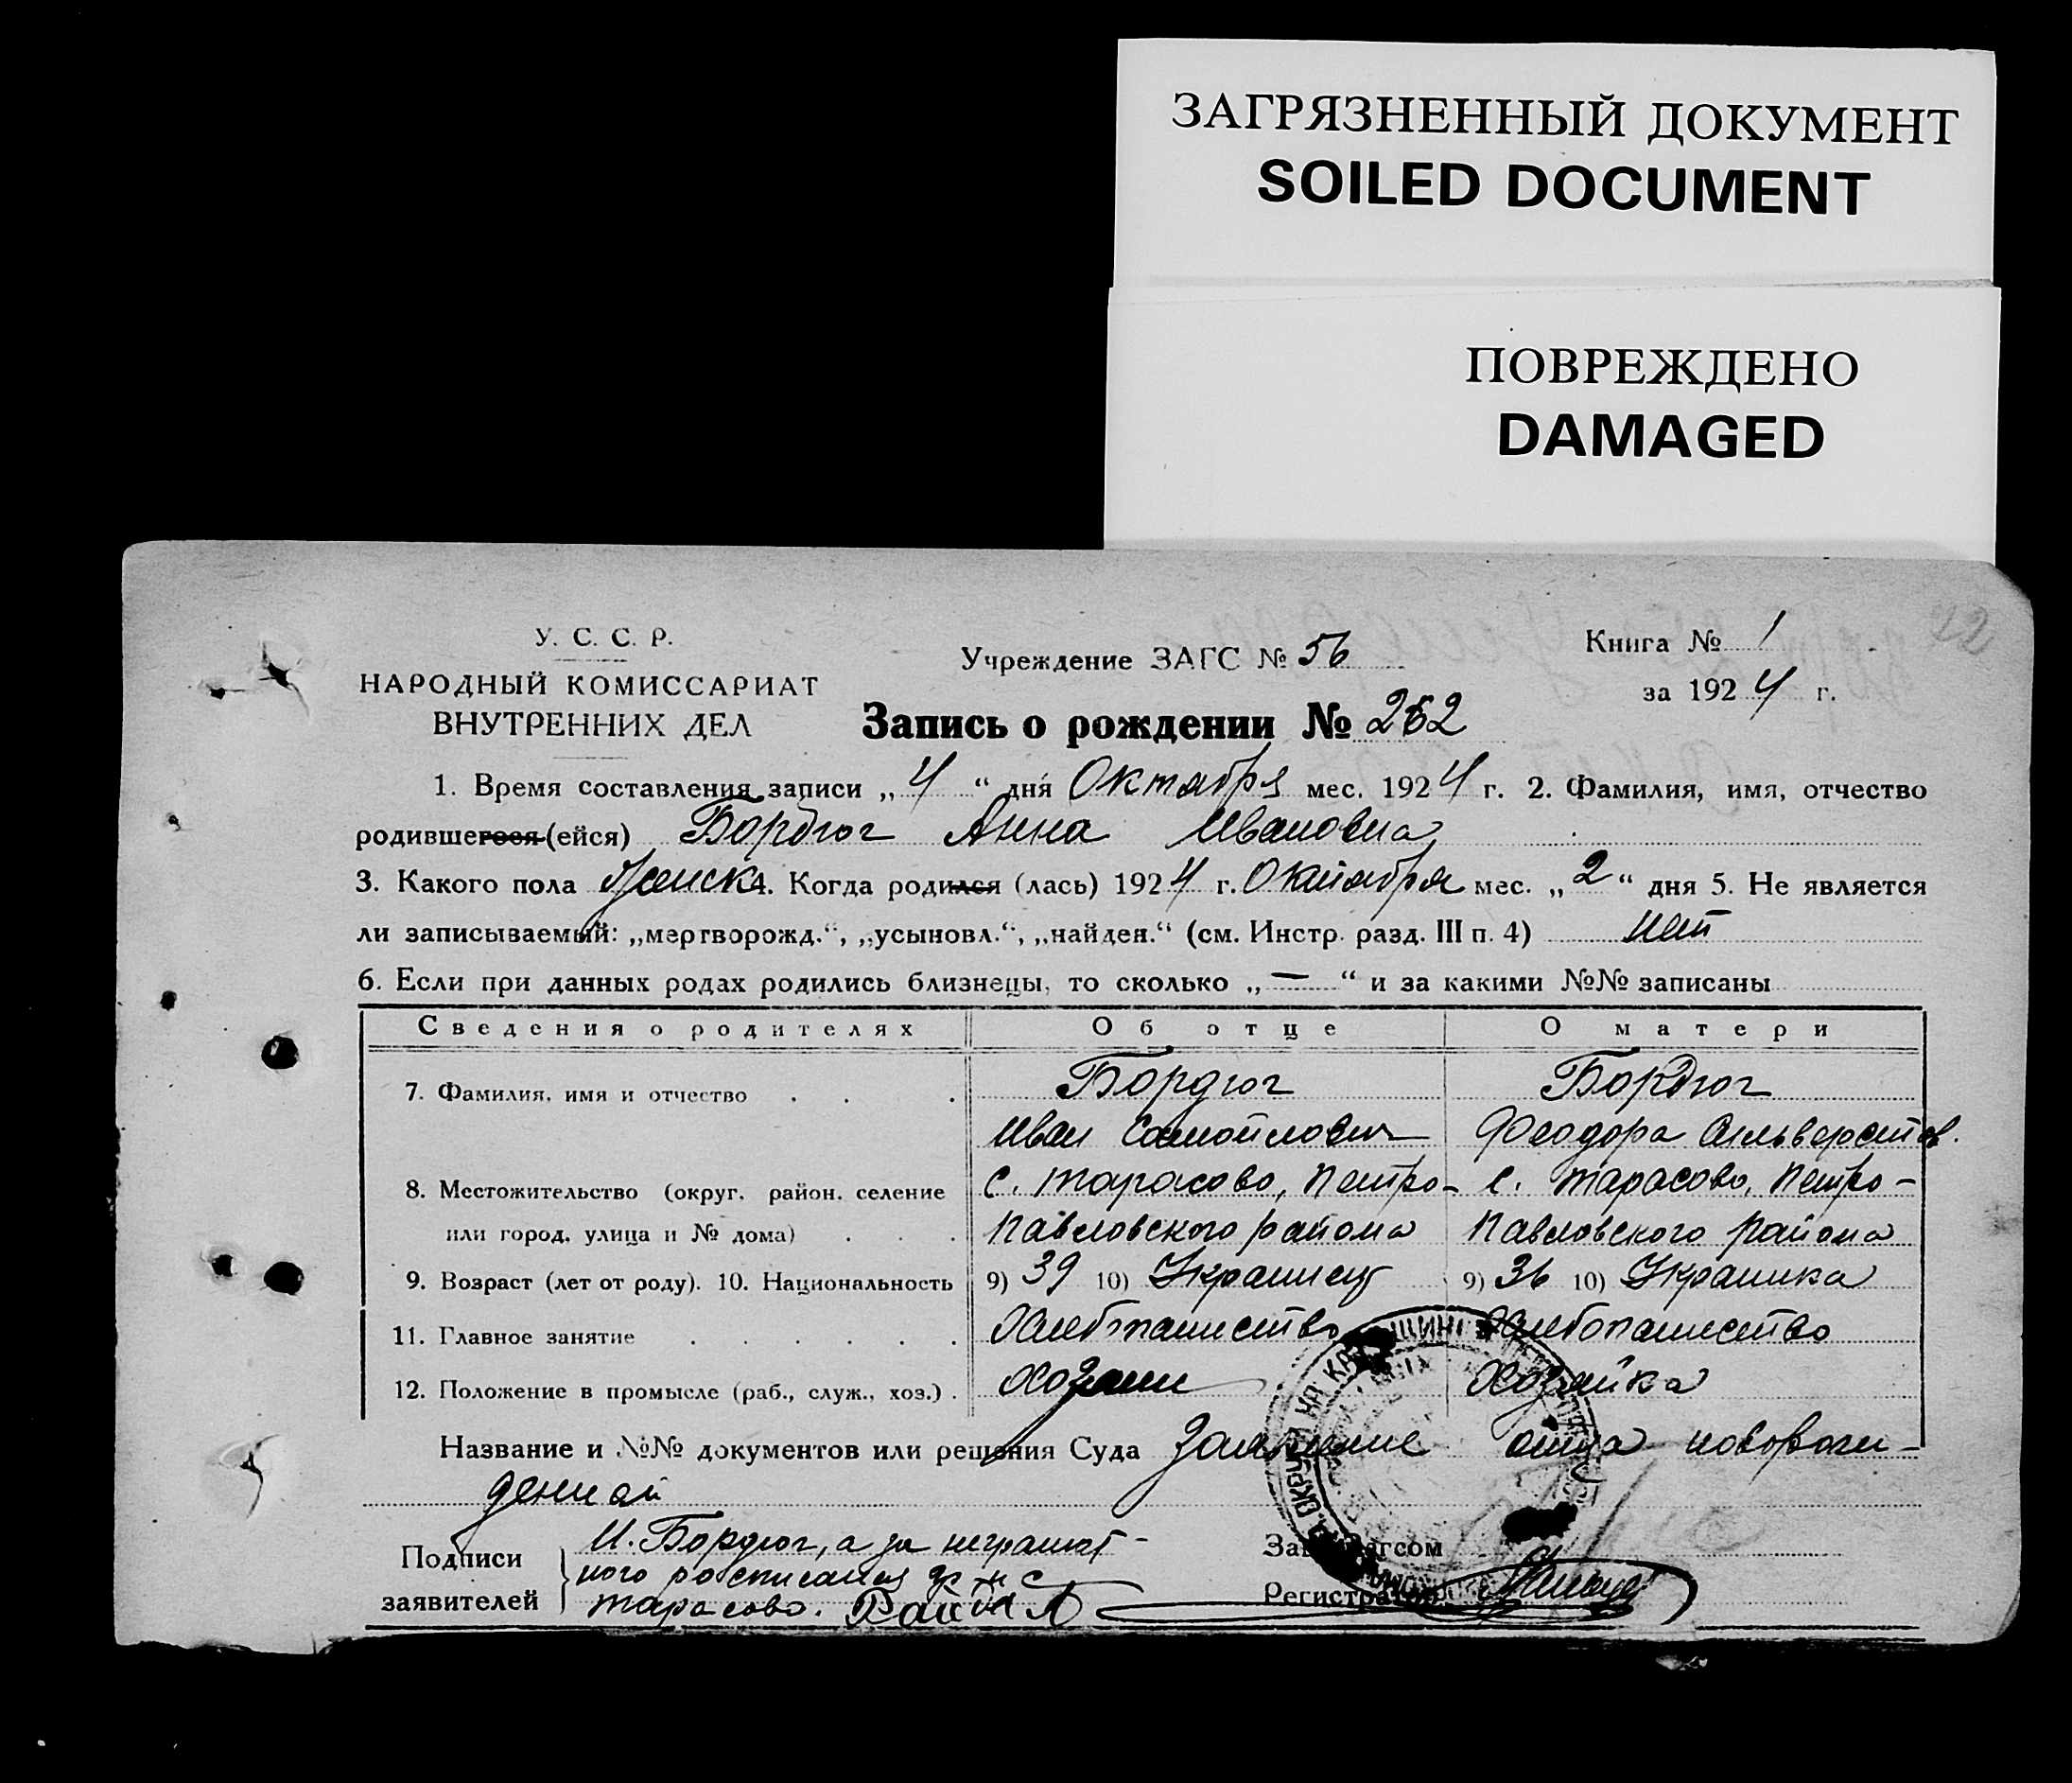 ЗАГРЯЗНЕННЫЙ ДОКУМЕНТ
SOILED DOCUMENT
ПОВРЕЖДЕНО
DAMAGED
У. С. С. Р.
НАРОДНЫЙ КОМИССАРИАТ
ВНУТРЕННИХ ДЕЛ
Учреждение ЗАГС № 56
Книга № 1
за 1924 г.
Запись о рождении № 262
1. Время составления записи „4“ дня Октября мес. 1924 г. 2. Фамилия, имя, отчество
родившегося (ейся) Бордюг Анна Ивановна
3. Какого пола Женск 4. Когда родился (лась) 1924 г. Октября мес. „2“ дня 5. Не является
ли записываемый: „мертворожд.“, „усыновл.“, „найден.“ (см. Инстр. разд. III п. 4) нет
6. Если при данных родах родились близнецы, то сколько „—“ и за какими №№ записаны
Сведения о родителях Об отце О матери
7. Фамилия, имя и отчество . . . Бордюг Бордюг
Иван Самойлович Феодора Сильверстов.
8. Местожительство (округ, район, селение с. Тарасово, Петро- с. Тарасово, Петро-
или город, улица и № дома) . . . Павловского района Павловского района
9. Возраст (лет от роду). 10. Национальность 9) 39 10) Украинец 9) 36 10) Украинка
11. Главное занятие . . . . . Хлебопашество Хлебопашество
12. Положение в промысле (раб., служ., хоз.) . Хозяин Хозяйка
Название и №№ документов или решения Суда Заявление отца новорож-
денной
Подписи
заявителей
И. Бордюг, а за неграмот-
ного росписался
Тарасово.
Зав. Загсом
Регистратор